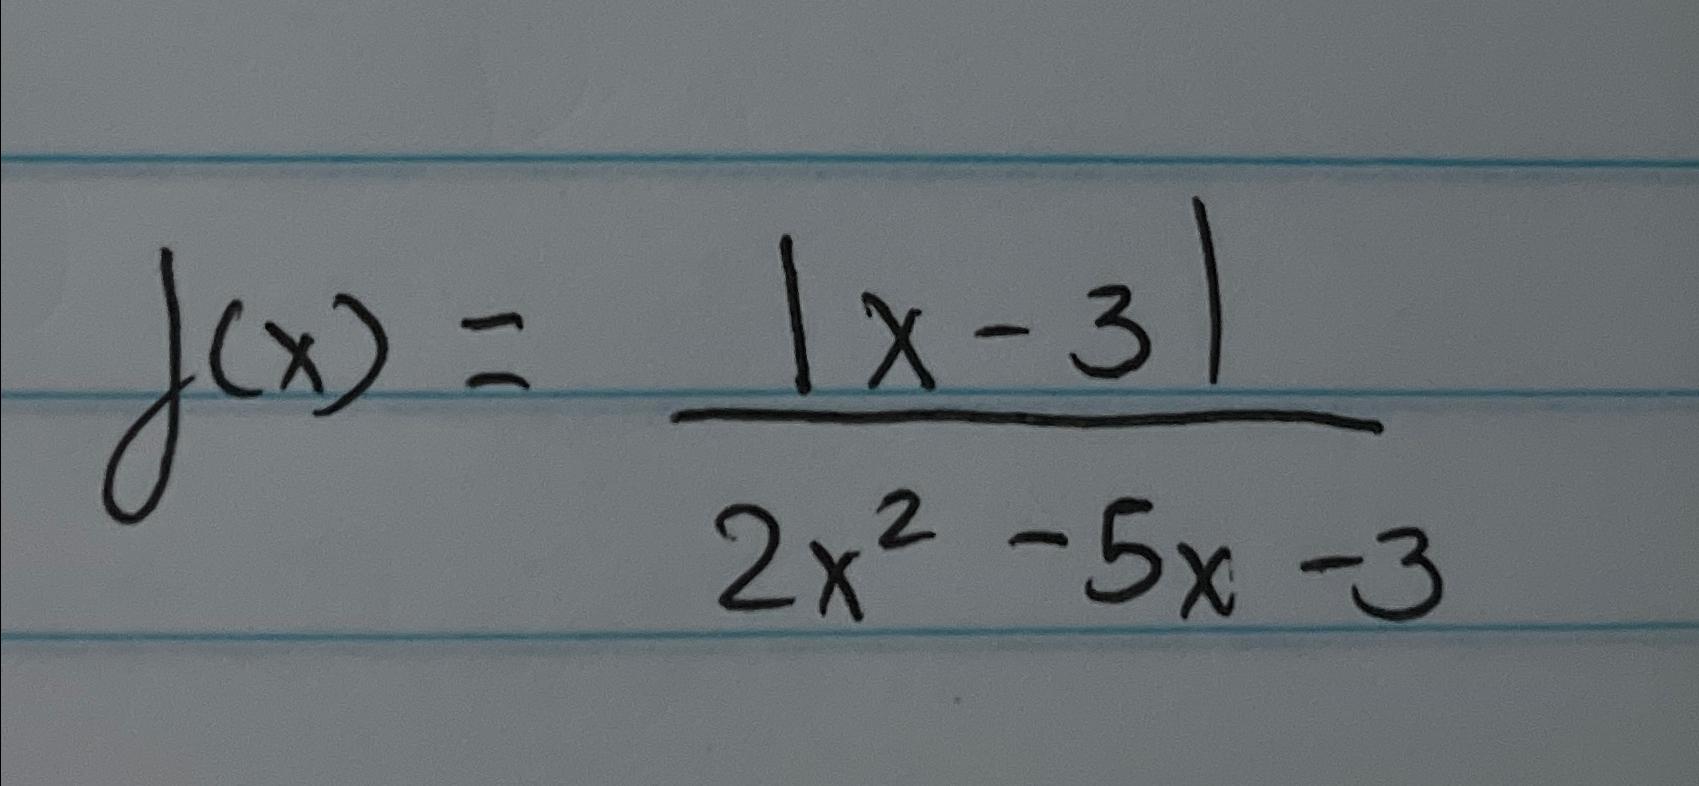 f(x) = |x - 3| / 2x² - 5x - 3